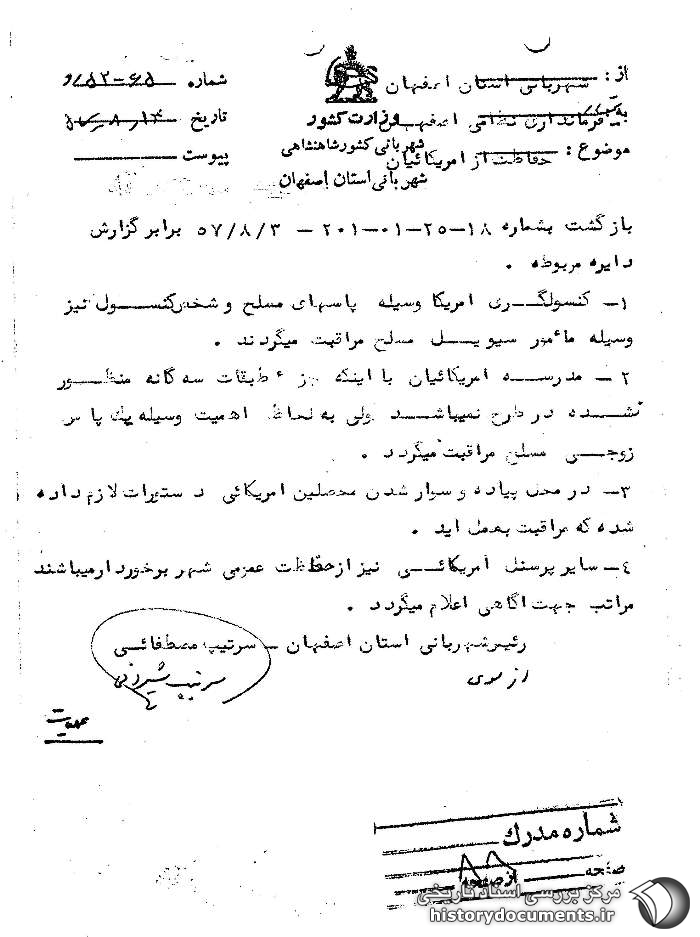 از: شهربانی استان اصفهان
به: فرمانداری نظامی اصفهان
موضوع: حفاظت از امریکائیان
وزارت کشور
شهربانی کشور شاهنشاهی
شهربانی استان اصفهان
شماره
تاریخ
پیوست
بازگشت بشماره ۱۸–۲۵–۰۱–۲۰۱ – ۵۷/۸/۳ برابر گزارش
دایره مربوطه .
۱– کنسولگری امریکا وسیله پاسهای مسلح و شخص کنسول نیز
وسیله مأمور سیویل مسلح مراقبت میگردند .
۲– مدرسه امریکائیان با اینکه جزء طبقات سه گانه منظور
نشده در طرح نمیباشد ولی به لحاظ اهمیت وسیله یك پاس
زوجی مسلح مراقبت میگردد .
۳– در محل پیاده و سوار شدن محصلین امریکائی دستورات لازم داده
شده که مراقبت بعمل اید .
٤– سایر پرسنل آمریکائی نیز از حفاظت عمومی شهر برخوردار میباشند
مراتب جهت اگاهی اعلام میگردد .
رئیس شهربانی استان اصفهان – سرتیپ مصطفائی
از سوی
شماره مدرك
صفحه
از صفحه
مرکز بررسی اسناد تاریخی
historydocuments.ir